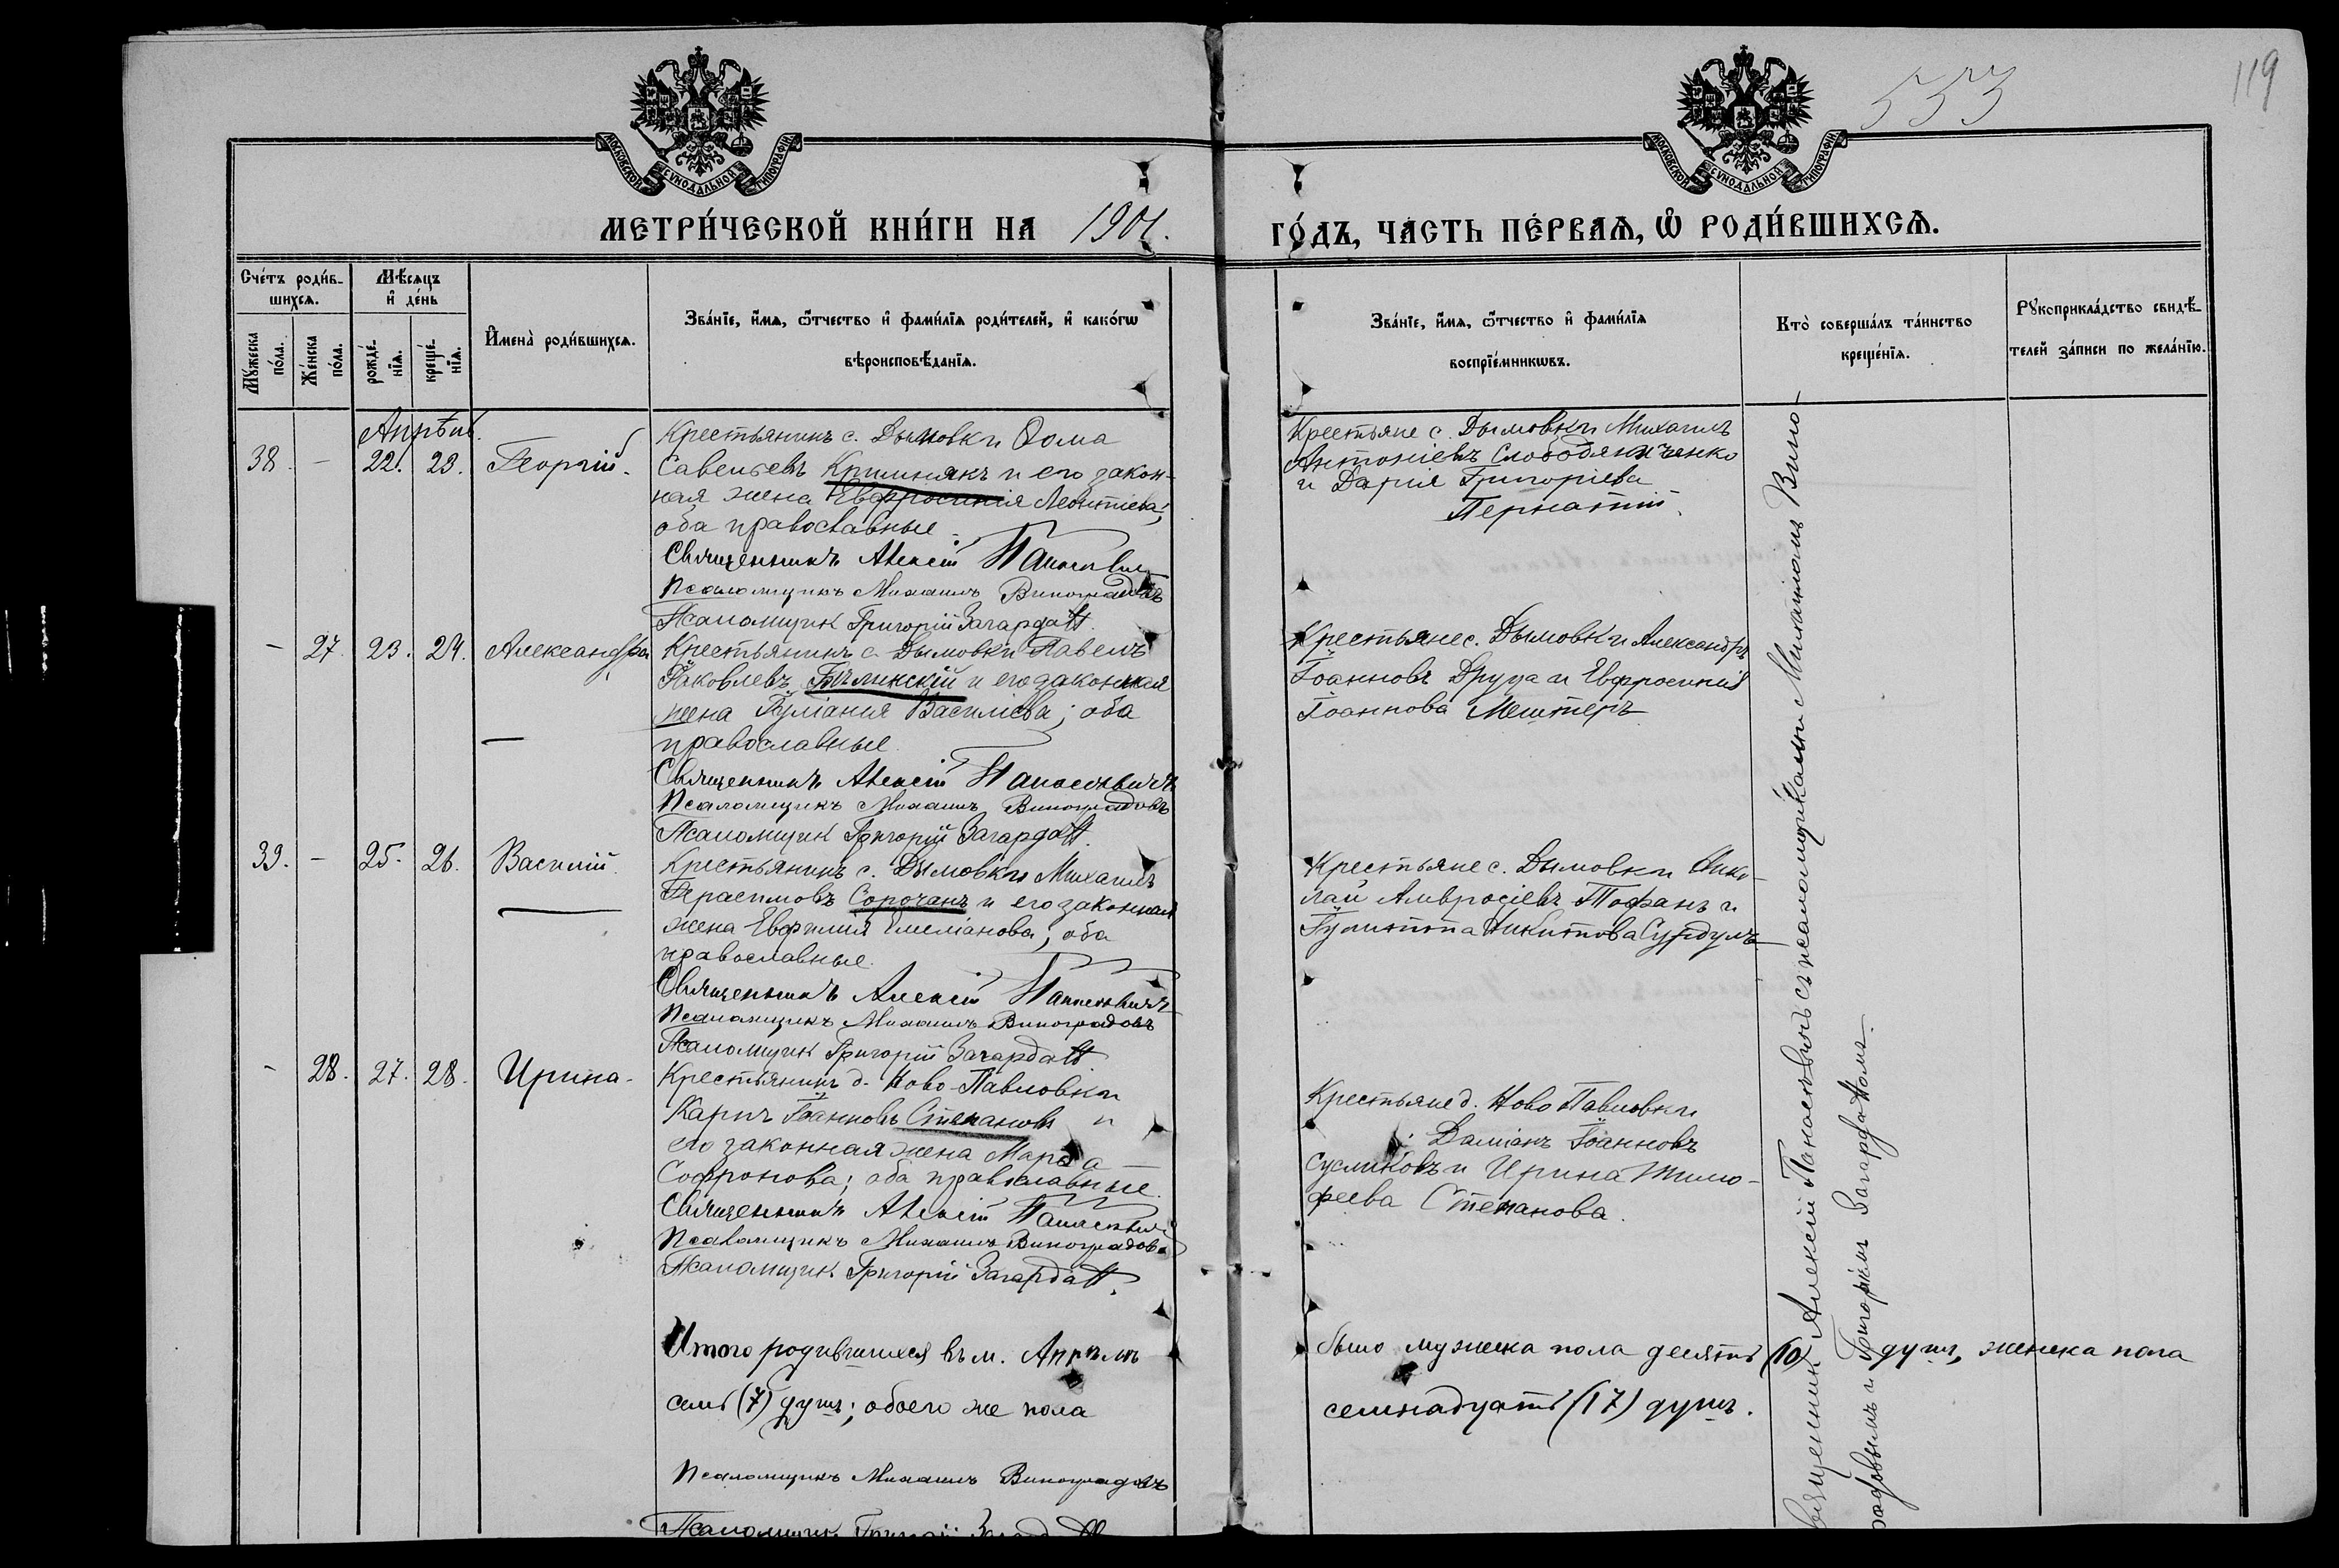 553
119
МОСКОВСКОЙ СѴНОДАЛЬНОЙ ТИПОГРАФІИ
МОСКОВСКОЙ СѴНОДАЛЬНОЙ ТИПОГРАФІИ
МЕТРИ́ЧЕСКОЙ КНИ́ГИ НА 1901.
ГО́ДЪ, ЧА́СТЬ ПЕ́РВАѦ, Ѡ҆ РОДИ́ВШИХСѦ.
Сче́тъ роди́в-
шихсѧ.
Мꙋ́жеска по́ла.
Же́нска по́ла.
Мѣ́сѧцъ
и҆ де́нь
рожде́-
нїѧ.
креще́-
нїѧ.
И҆мена̀ роди́вшихсѧ.
Зва́нїе, и҆́мѧ, ѻ҆́тчество и҆ фами́лїѧ роди́телей, и҆ како́гѡ
вѣроисповѣ́данїѧ.
Зва́нїе, и҆́мѧ, ѻ҆́тчество и҆ фами́лїѧ
воспрїе́мникѡвъ.
Кто̀ соверша́лъ та́инство
креще́нїѧ.
Рꙋкоприкла́дство свидѣ́-
телей за́писи по жела́нїю.
Апрѣль.
38. – 22. 23. Георгій.
Крестьянинъ с. Дымовки Ѳома
Савельевъ Кришнякъ и его закон-
ная жена Евфросинія Леонтіева;
оба православные
Священникъ Алексій
Псаломщикъ Михаилъ Виноградовъ
Псаломщик Григорій
Крестьяне с. Дымовки Михаилъ
Антоніевъ Слободяниченко
и Дарія Григоріева
Пернатій.
– 27. 23. 24. Александра
Крестьянинъ с. Дымовки Павелъ
Іаковлевъ Бѣлинскій и его законная
жена Іуліанія Василіева; оба
православные.
Священникъ Алексій Панасевичъ
Псаломщикъ Михаилъ Виноградовъ
Псаломщик Григорій
Крестьяне с. Дымовки Александръ
Іоанновъ Друца и Евфросинія
Іоаннова Мештеръ
39. – 25. 26. Василій.
Крестьянинъ с. Дымовки Михаилъ
Герасимовъ Сорочанъ и его законная
жена Евфимія Емеліанова; оба
православные.
Священникъ Алексій Панасевичъ
Псаломщикъ Михаилъ Виноградовъ
Псаломщик Григорій
Крестьяне с. Дымовки Нико-
лай Амвросіевъ Тофанъ и
Іулитта Никитова Сурдулъ
– 28. 27. 28. Ирина.
Крестьянинъ д. Ново-Павловки
Карпъ Іоанновъ Степановъ и
его законная жена Марѳа
Софронова; оба православные.
Священникъ Алексій
Псаломщикъ Михаилъ Виноградовъ
Псаломщик Григорій
Крестьяне д. Ново Павловки
Даміанъ Іоанновъ
Сусликовъ и Ирина Тимо-
феева Степанова.
Священник Алексій Панасевичъ съ псаломщиками Михаиломъ Вино-
градовымъ и Григоріемъ
Итого родившихся въ м. Апрѣлѣ было мужеска пола десять (10) душъ, женска пола
семь (7) душъ; обоего же пола семнадцать (17) душъ.
Псаломщикъ Михаилъ Виноградовъ
Псаломщик Григорій